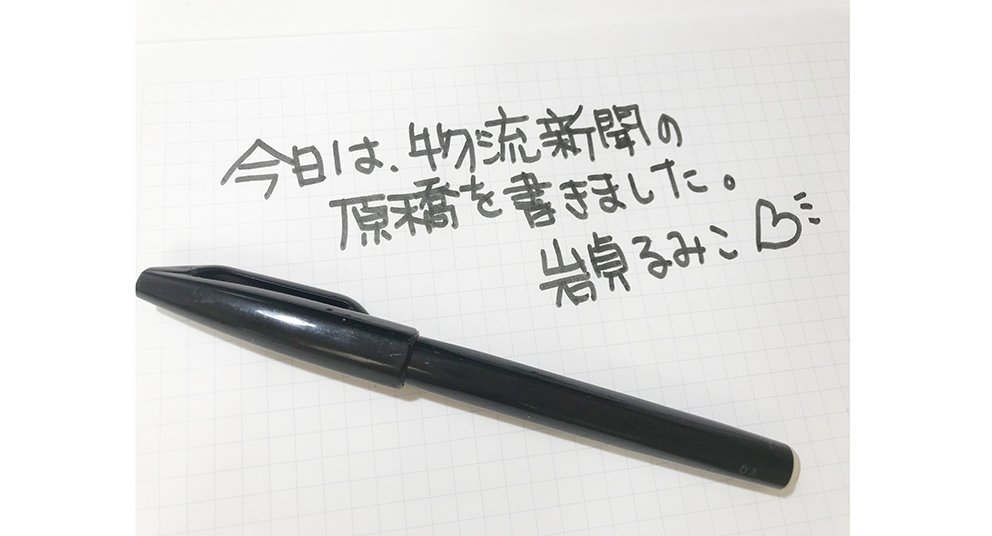 今日は、物流新聞の
原稿を書きました。
岩貞るみこ♡